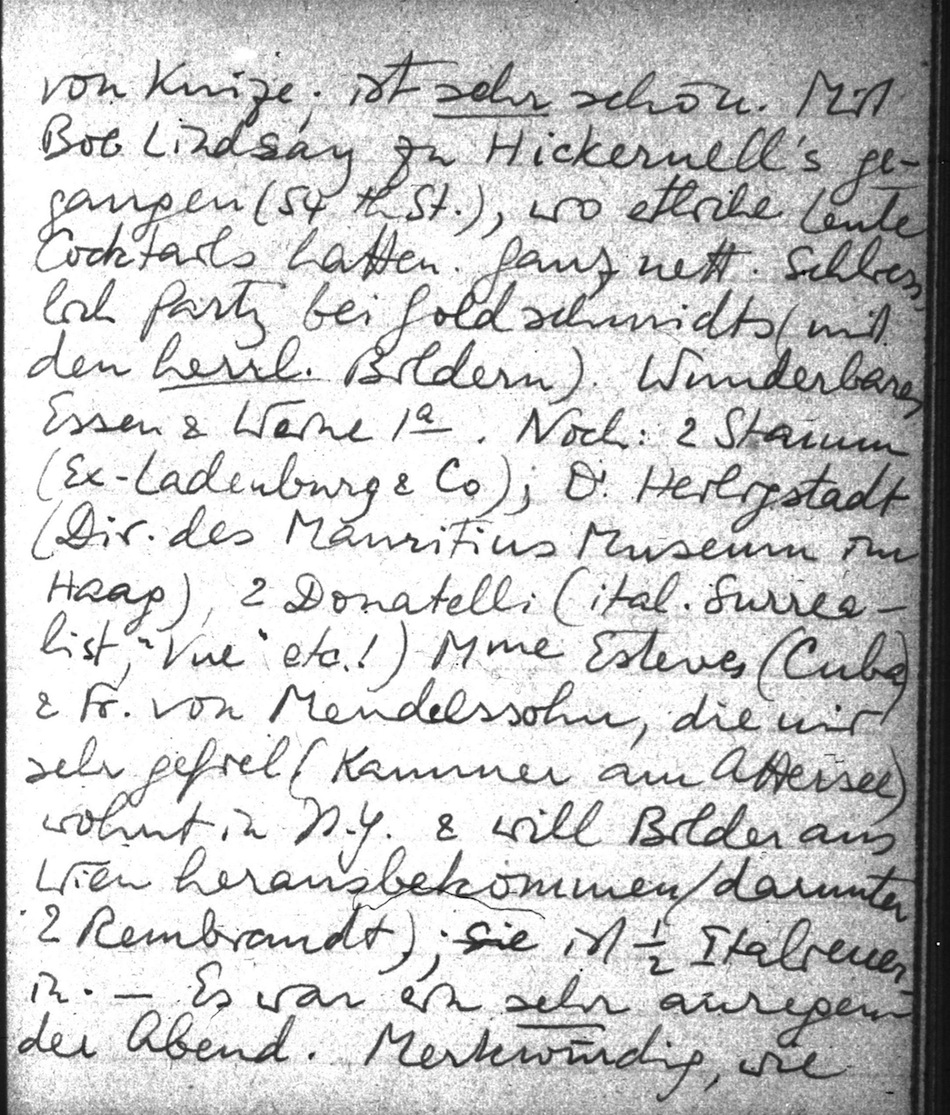 von Knize; ist sehr schön. Mit
Bob Lindsay zu Hickernell's ge-
gangen (54 th St.), wo etliche Leute
Cocktails hatten. Ganz nett. Schliess-
lich Party bei Goldschmidts (mit
den herrl. Bildern). Wunderbares
Essen & Weine 1a. Noch: 2 Stamm
(Ex-Ladenburg & Co); Dr. Heiligstadt
(Dir. des Mauritius Museum im
Haag), 2 Donatelli (ital. Surrea-
list, "Vue" etc.!) Mme Esteves (Cuba)
& Fr. von Mendelssohn, die mir
sehr gefiel (Kammer am Attersee)
wohnt in N.Y. & will Bilder aus
Wien herausbekommen (darunter
2 Rembrandt); sie ist ½ Italiener-
in. — Es war ein sehr anregen-
der Abend. Merkwürdig, wie